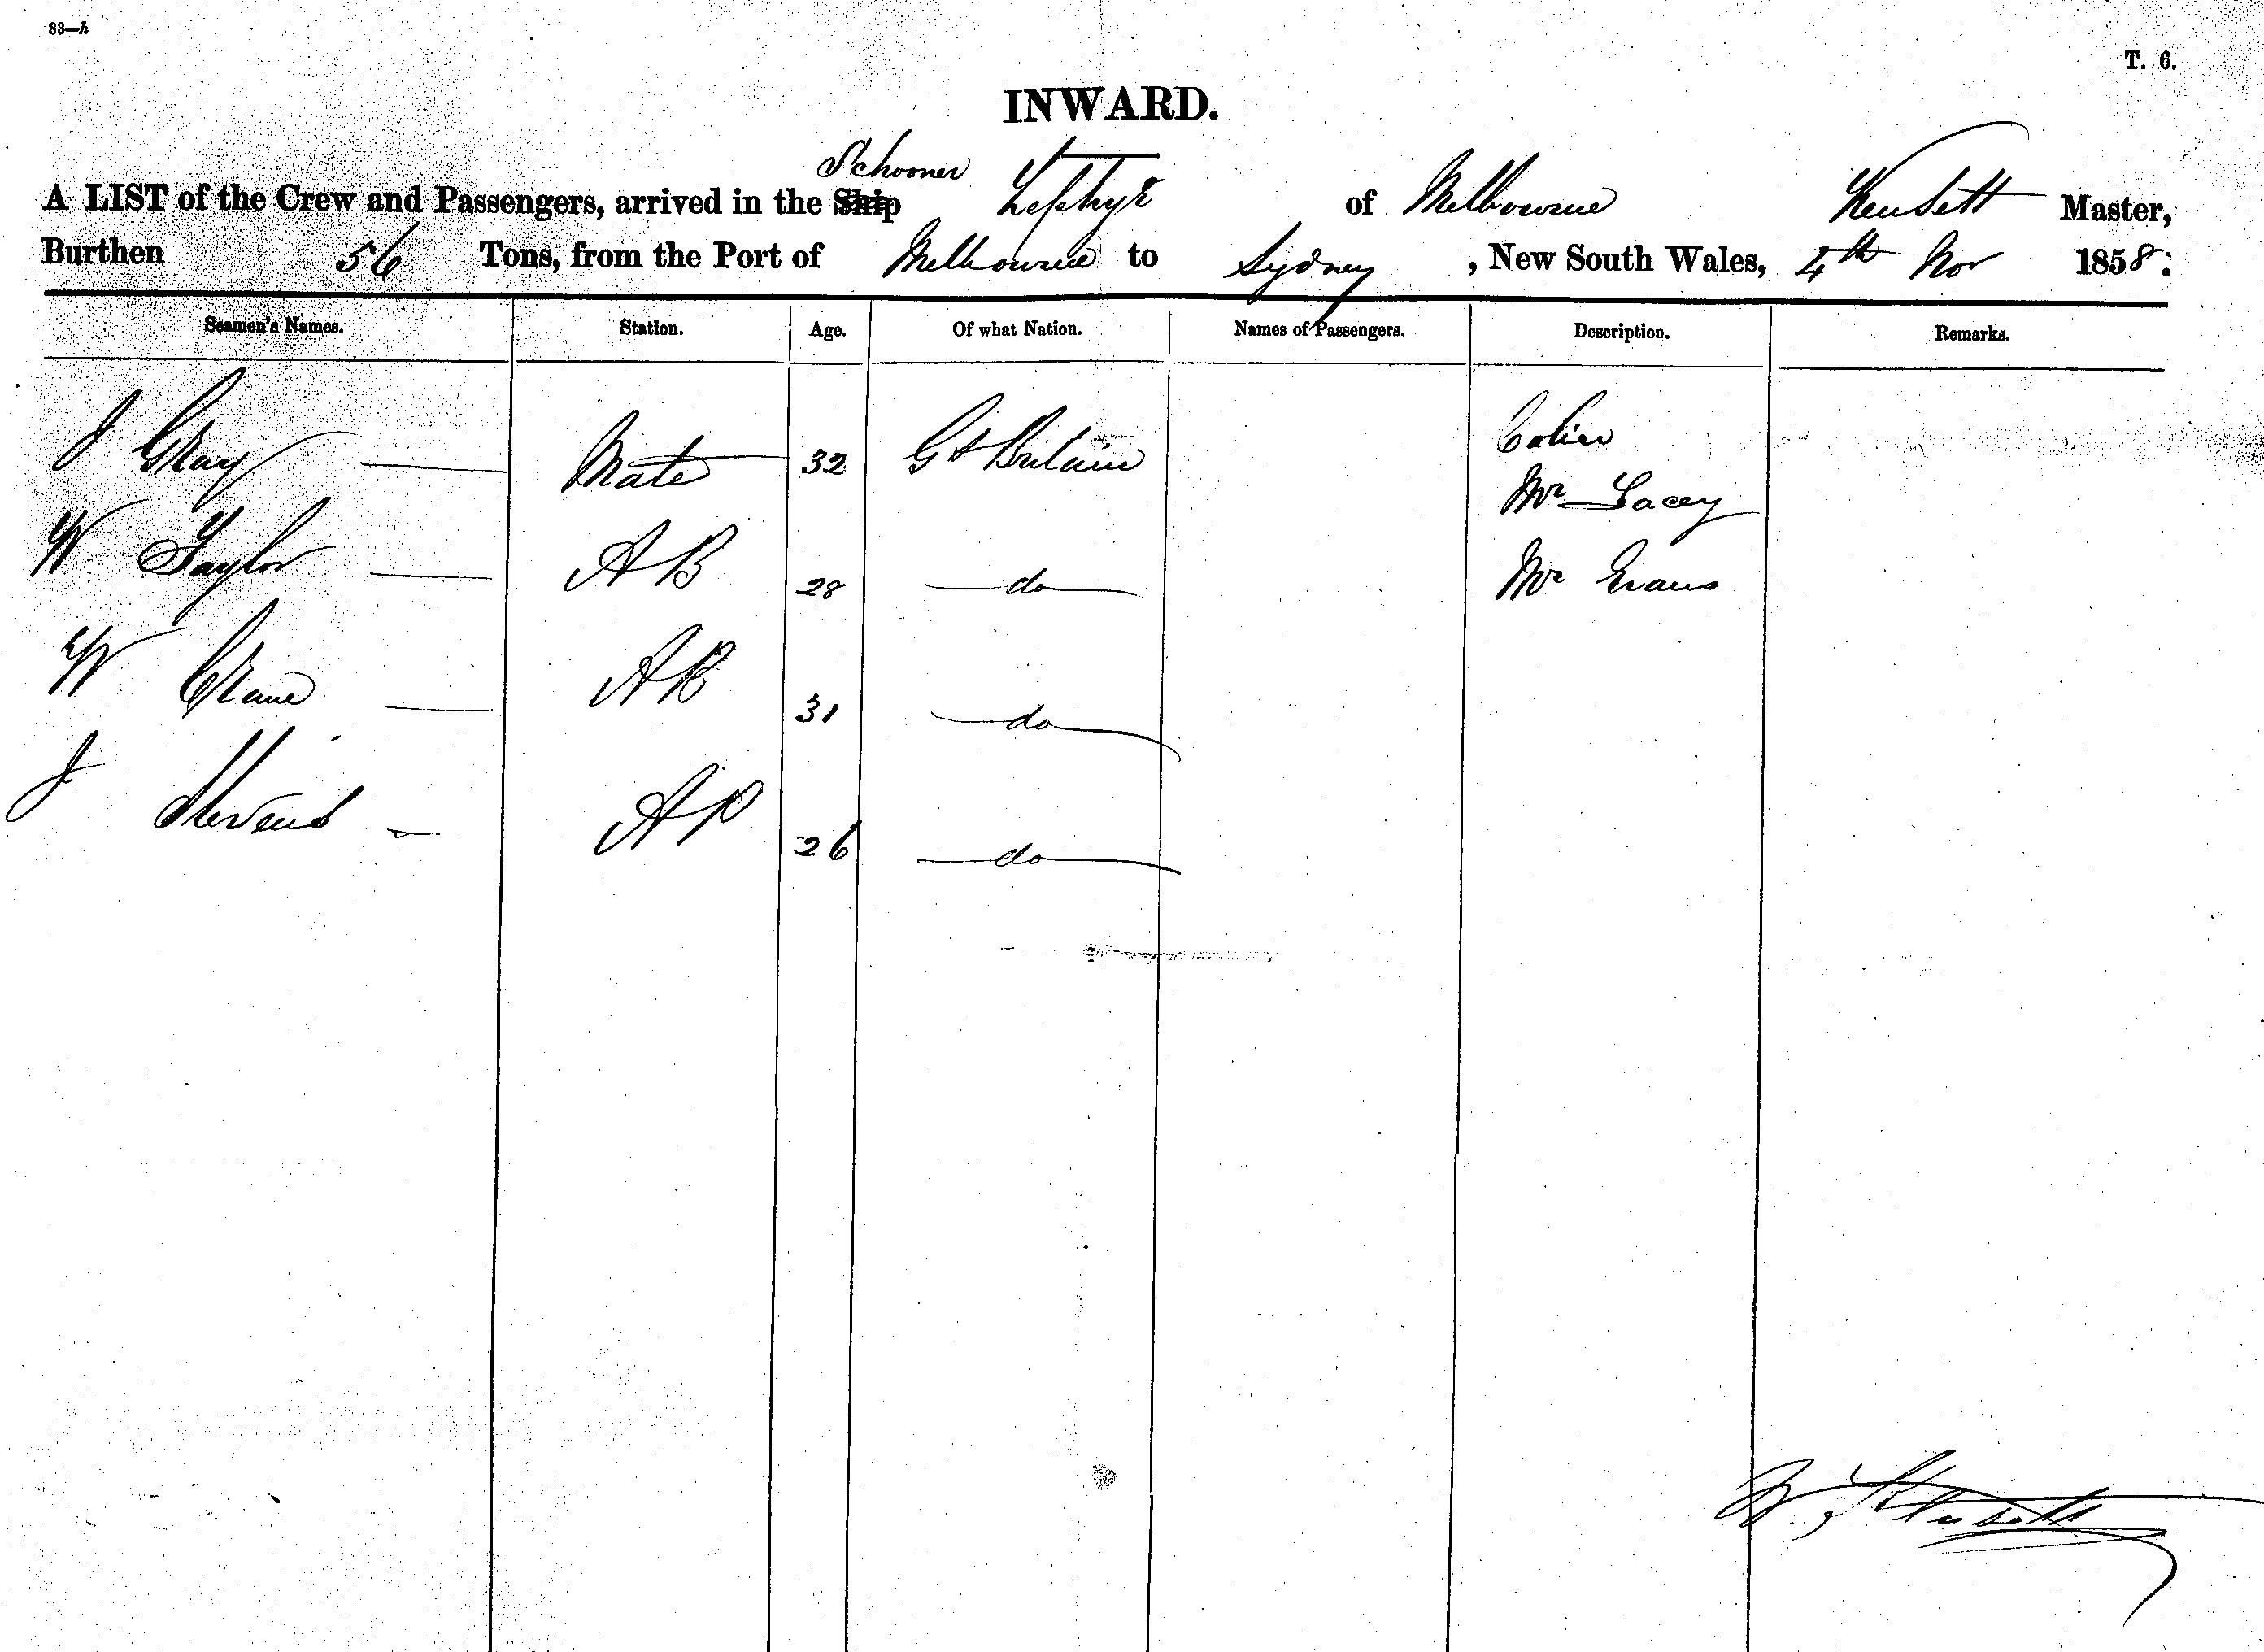 83—A
T. 6.
INWARD.
Schooner
A LIST of the Crew and Passengers, arrived in the Ship Zephyr of Melbourne Kensett Master,
Burthen 56 Tons, from the Port of Melbourne to Sydney, New South Wales, 4th Nov 1858:
Seamen's Names. Station. Age. Of what Nation. Names of Passengers. Description. Remarks.
J Gray Mate 32 Gt Britain Cabin
Mr Lacey
W Taylor AB 28 do Mr Evans
W Crane AB 31 do
J Stevens AB 26 do